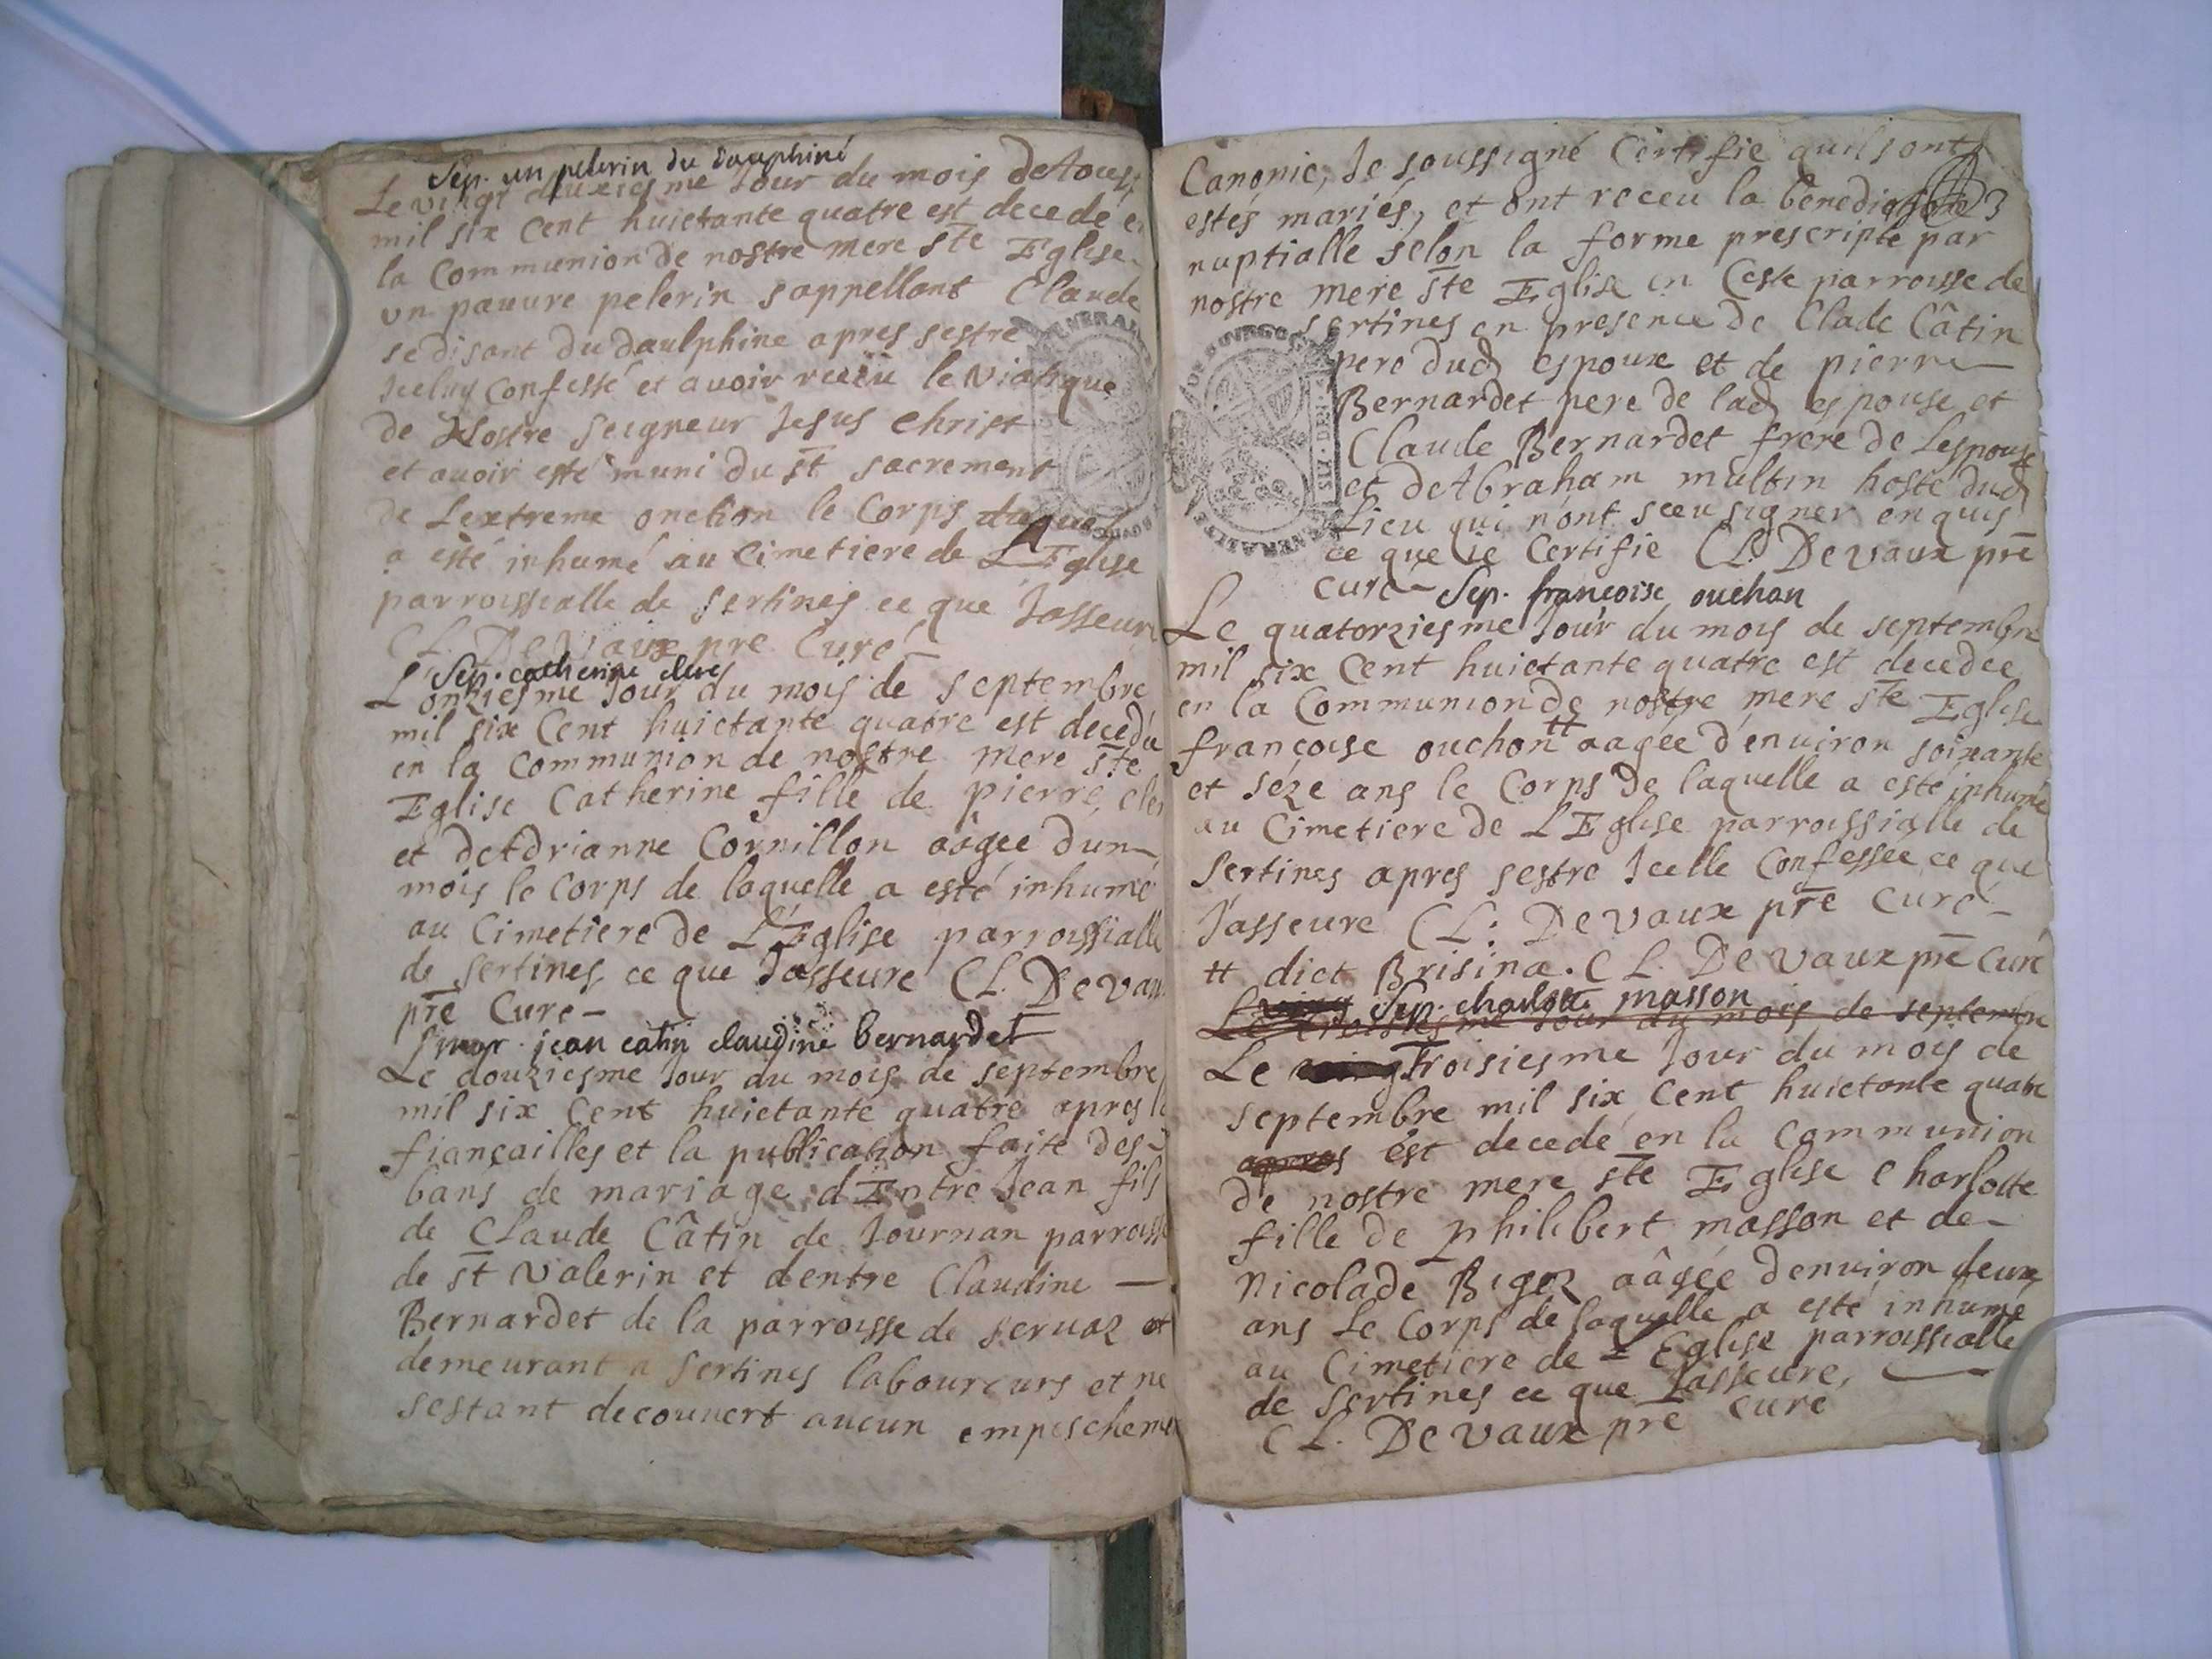 Sep. un pelerin du dauphiné
Le vingt deuxiesme Jour du mois de Aoust
mil six Cent huictante quatre est decedé en
la Communion de nostre mere ste Eglise
un pauvre pelerin sappellant Claude
se disant du daulphine apres sestre
Jceluy Confessé et avoir receu le Viatique
de Nostre Seigneur Jesus Christ
et avoir esté muni du st sacrement
de Lextreme onction le Corps duquel
a esté inhumé au Cimetiere de LEglise
parroissialle de Sertines ce que Jasseure
CL. Devaux pre Curé
Sep. catherine clerc
L'onziesme Jour du mois de septembre
mil six Cent huictante quatre est decedée
en la Communion de nostre mere ste
Eglise Catherine fille de pierre cler
et de Adrianne Cornillon aâgee dun
mois le Corps de laquelle a esté inhumé
au Cimetiere de LEglise parroissialle
de Sertines ce que Jasseure CL. Devaux
pre Cure
mar. jean catin claudine bernardet
Le douziesme Jour du mois de septembre
mil six Cent huictante quatre apres le
fiançailles et la publication faite des
bans de mariage dEntre Jean fils
de Claude Câtin de Journan parroisse
de st Valerin et dentre Claudine
Bernardet de la parroisse de Servaz et
demeurant a Sertines laboureurs et ne
sestant decouvert aucun empeschement
Canonic, Je soussigné Certifie quil sont
estés mariés, et ont receu la benediction
nuptialle selon la forme prescripte par
nostre mere ste Eglise en Ceste parroisse de
sertines en presence de Clade Câtin
pere dud espoux et de pierre
Bernardet pere de lad espouse et
Claude Bernardet frere de Lespouse
et de Abraham multin hoste dud
Lieu qui n'ont sceu signer enquis
ce que ie Certifie CL. Devaux pre
curé
Sep. françoise ouchon
Le quatorziesme Jour du mois de septembre
mil six Cent huictante quatre est decedee
en la Communion de nostre mere ste Eglise
françoise ouchon tt aagée d'environ soixante
et séze ans le Corps de laquelle a esté inhumé
au Cimetiere de LEglise parroissialle de
Sertines apres sestre Jcelle Confessee ce que
J'asseure CL: Devaux pre Curé
tt dict Brisina. CL. Devaux pre Curé
Sep. charlotte masson
Le troisiesme Jour du mois de septembre
Le troisiesme Jour du mois de
septembre mil six Cent huictante quatre
apres est decedé en la Communion
de nostre mere ste Eglise Charlotte
fille de philibert masson et de
Nicolade Bigoz aâgée denviron deux
ans Le Corps de laquelle a esté inhumé
au Cimetiere de L Eglise parroissialle
de Sertines ce que Jasseure,
CL. Devaux pre Curé